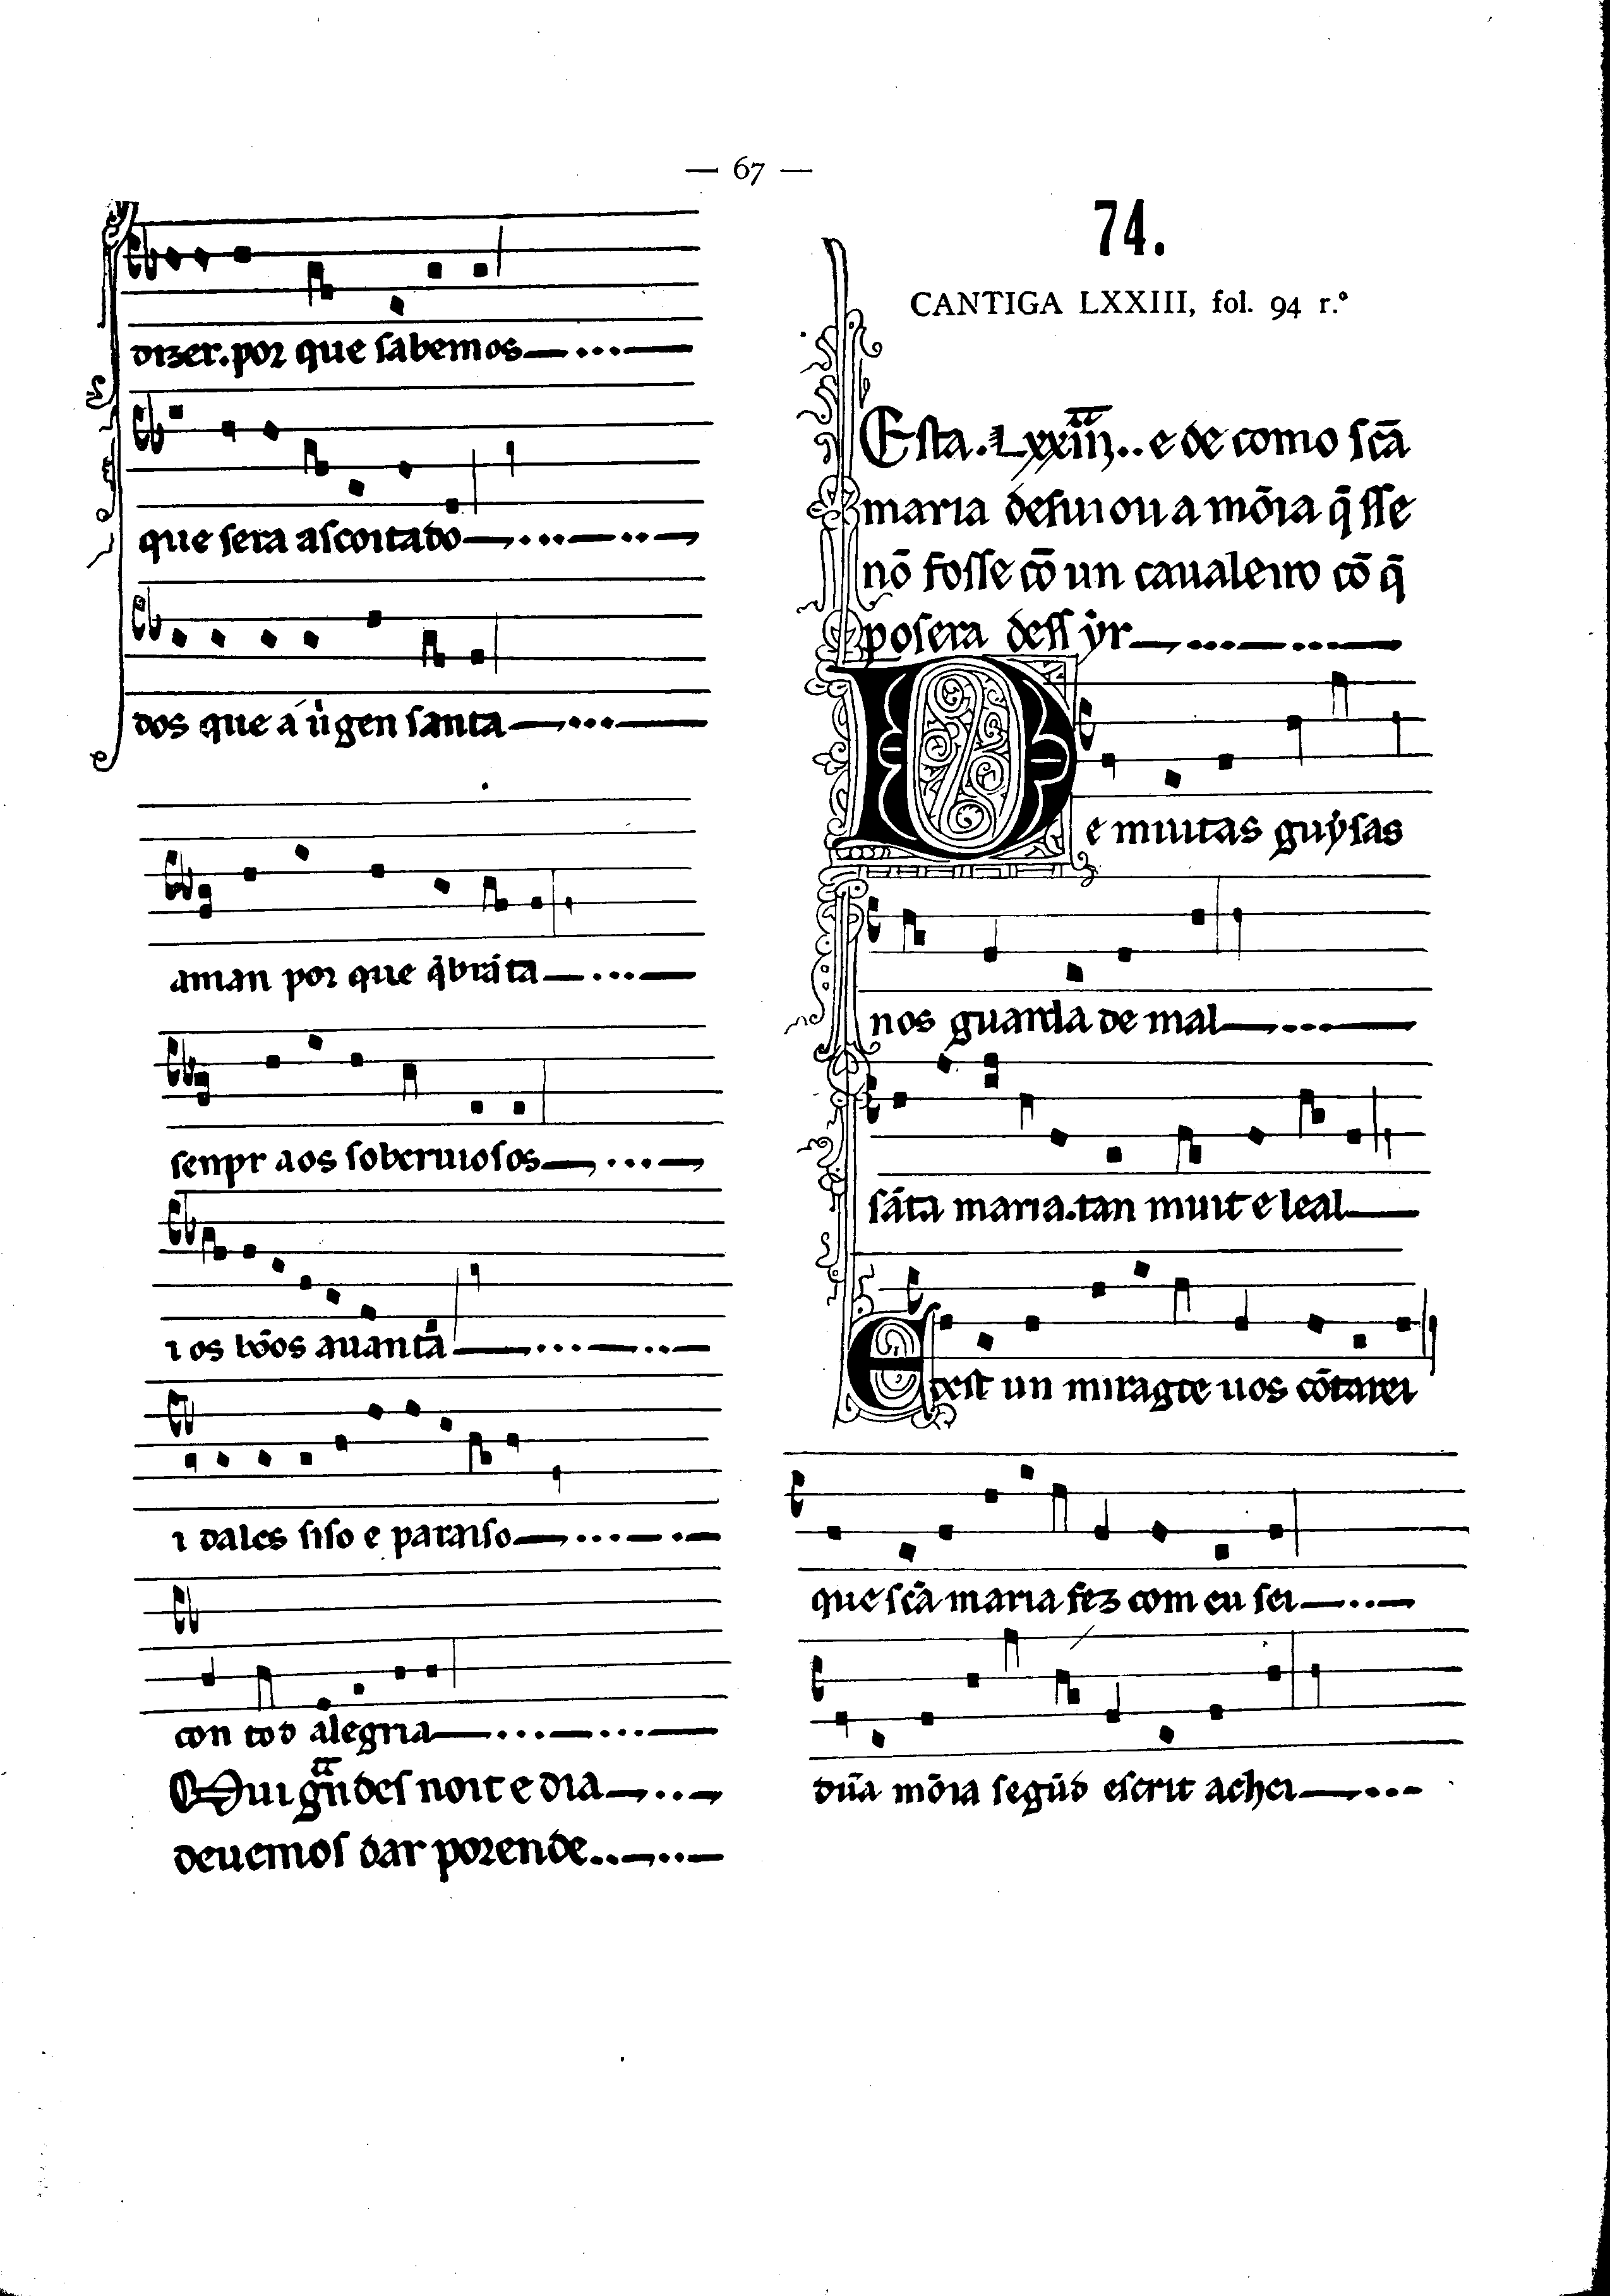 — 67 —
dizer. por que sabemos
que sera ascoitado
dos que a uirgen santa
aman por que q̄brāta
senpr aos soberuiosos
i os bōos auantā
i dales siso e paraiso
con tod alegria
Mui grādes noit e dia
deuemos dar porende
74.
CANTIGA LXXIII, fol. 94 r.º
Esta. Lxxiiij.. e de como scā
maria desuiou a mōia q̄ sse
nō fosse cō un caualeiro cō q̄
posera dess ẏr
De muitas guẏsas
nos guarda de mal
sāta maria. tan muit e leal
E dest un miragre uos cōtarei
que scā maria fez com eu sei
dūa mōia segūd escrit achei